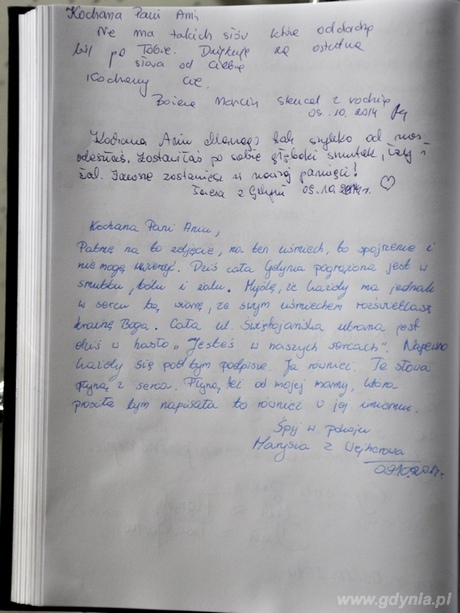 Kochana Pani Aniu
Nie ma takich słów które oddadzą
ból po Tobie. Dziękuję za ostatnie
słowa od Ciebie
Kochamy Cię.
Marcin z rodziną
09.10.2014
Kochana Aniu dlaczego tak szybko od nas
odeszłaś. Zostawiłaś po sobie głęboki smutek, łzy i
żal. Zawsze zostaniesz w naszej pamięci!
Teresa z Gdyni 09.10.2014r.
Kochana Pani Aniu,
Patrzę na to zdjęcie, na ten uśmiech, to spojrzenie i
nie mogę uwierzyć. Dziś cała Gdynia pogrążona jest w
smutku, bólu i żalu. Myślę, że każdy ma jednak
w sercu tą wiarę, że swym uśmiechem rozświetlasz
krainę Boga. Cała ul. Świętojańska ubrana jest
dziś w hasło „Jesteś w naszych sercach”. Napewno
każdy się pod tym podpisze. Ja również. Te słowa
płyną z serca. Płyną też od mojej mamy, która
prosiła bym napisała to również w jej imieniu.
Śpij w pokoju
Marysia z Wejherowa
09.10.2014r.
www.gdynia.pl